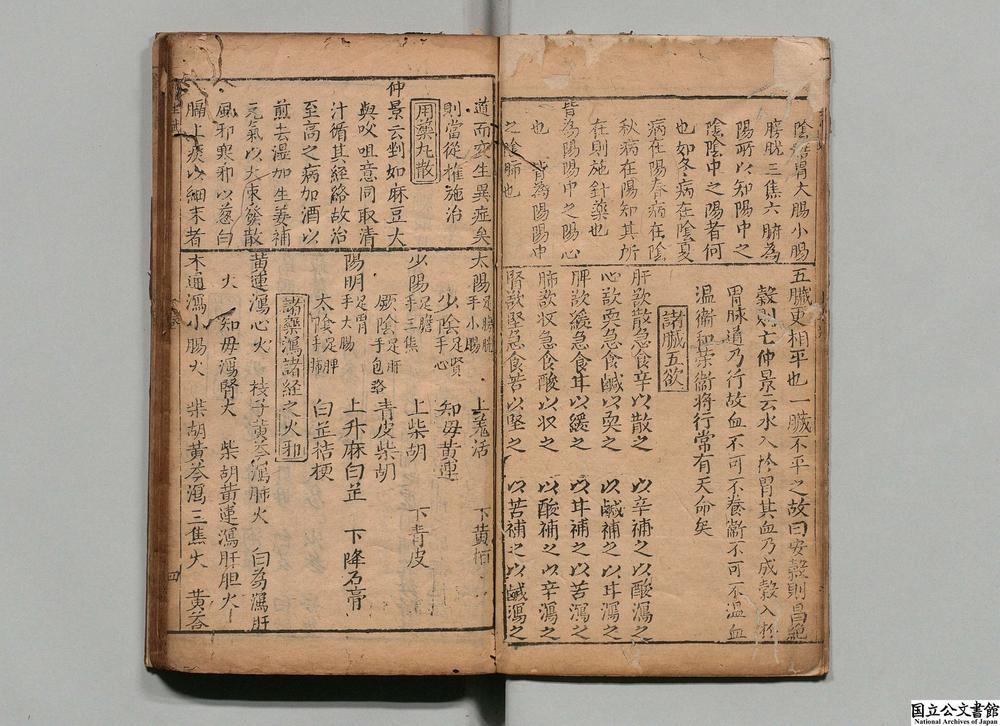 陰 胃大腸小腸
膀胱三焦六腑為
陽所以知陽中之
陰陰中之陽者何
也如冬病在陰夏
病在陽春病在陰
秋病在陽知其所
在則施針藥也
皆為陽陽中之陽心
也 背為陽陽中
之陰肺也
五臟更相平也一臟不平之故曰安穀則昌絕
穀則亡仲景云水入扵胃其血乃成穀入扵
胃脉道乃行故血不可不養衞不可不温血
温衞和荣衞將行常有天命矣
諸臟五欲
肝欲散急食辛以散之 以辛補之以酸瀉之
心欲耎急食鹹以耎之 以鹹補之以甘瀉之
脾欲緩急食甘以緩之 以甘補之以苦瀉之
肺欲收急食酸以收之 以酸補之以辛瀉之
腎欲坚急食苦以坚之 以苦補之以鹹瀉之
道而变生異症矣
則當從權施治
用藥丸散
仲景云剉如麻豆大
與㕮咀意同取清
汁循其經絡故治
至高之病加酒以
煎去湿加生姜補
元氣以大枣發散
風邪寒邪以葱白
膈上痰以細末者
太陽足膀胱手小腸 上羗活 下黄栢
少陰足腎手心 知母黄連
少陽足膽手三焦 上柴胡 下青皮
厥陰足肝手包絡 青皮柴胡
陽明足胃手大腸 上升麻白芷 下降石膏
太陰足脾手肺 白芷桔梗
諸藥瀉諸經之火邪
黄連瀉心火 枝子黄芩瀉肺火 白芍瀉肝
火 知母瀉腎火 柴胡黄連瀉肝胆火
木通瀉小腸火 柴胡黄芩瀉三焦火 黄芩
四
国立公文書館
National Archives of Japan